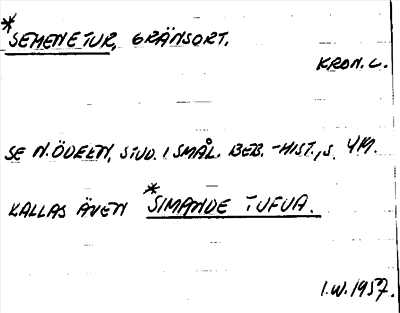 *SEMENETUR, GRÄNSORT.
KRON. L.
SE N. ÖDEEN, STUD. I SMÅL. BEB.-HIST., S. 419.
KALLAS ÄVEN *SIMANDE TUFUA.
I.W. 1957.